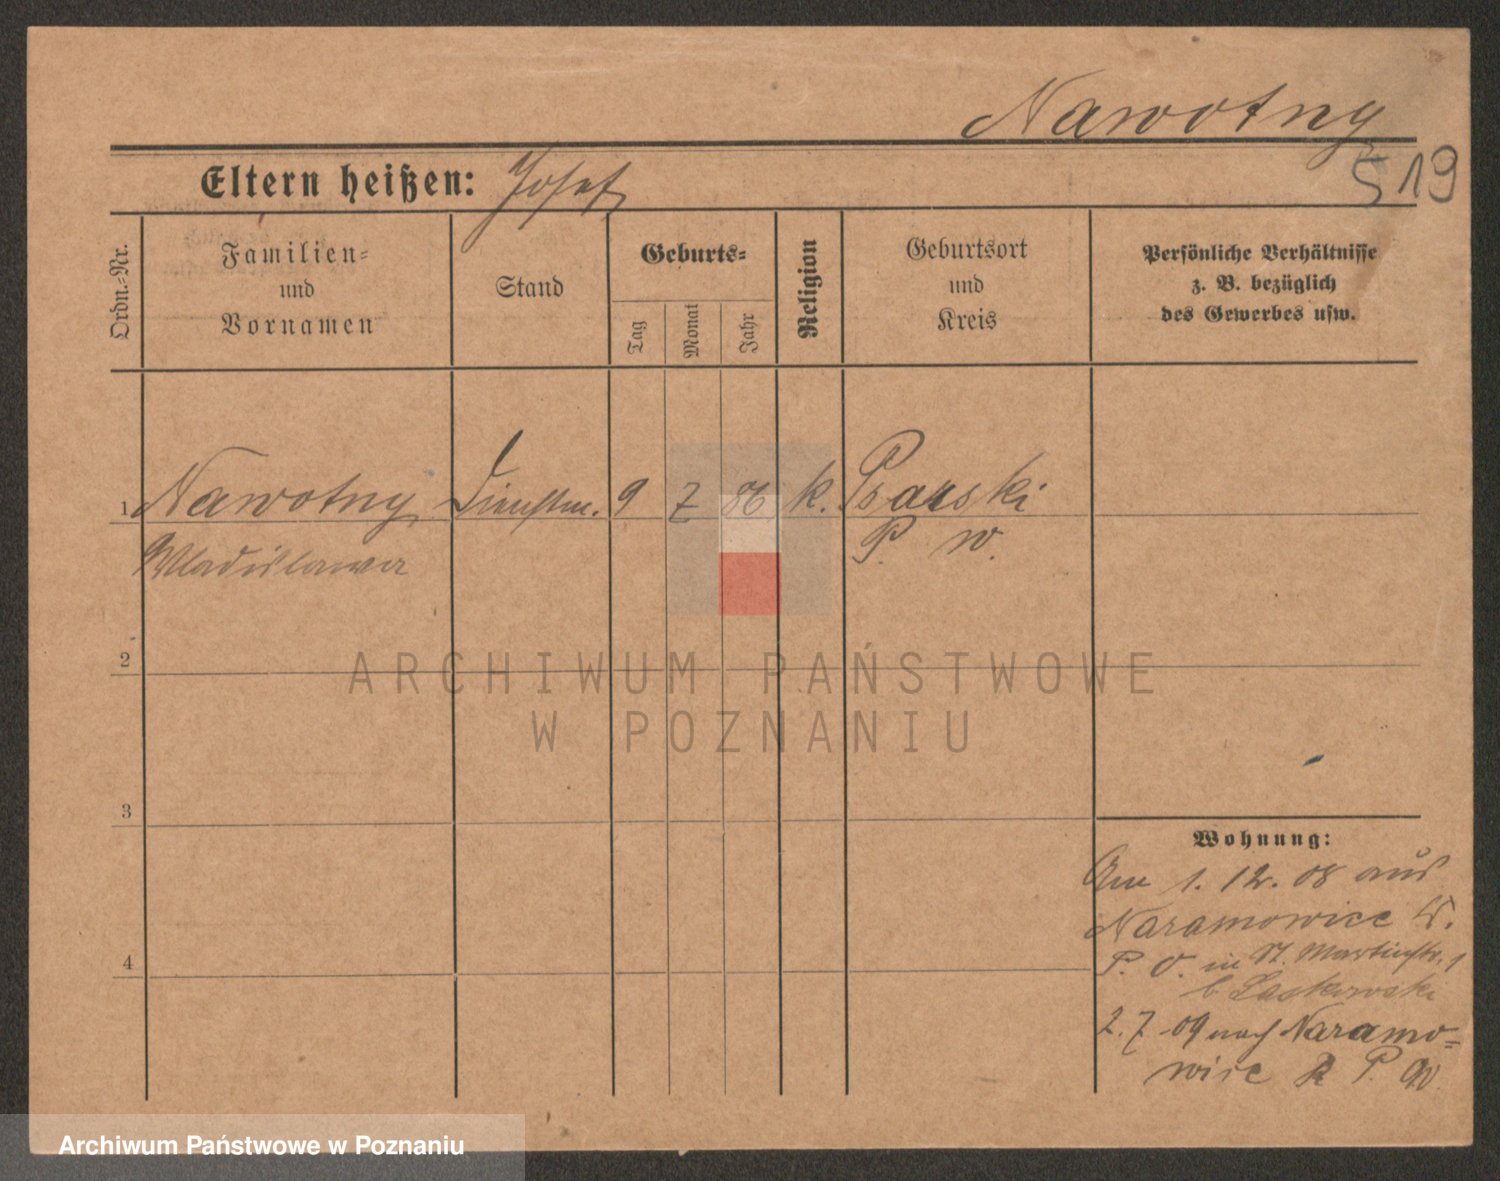 Nawotny
519
Eltern heißen: Josef
Ordn.-Nr.
Familien-
und
Vornamen
Stand
Geburts-
Tag
Monat
Jahr
Religion
Geburtsort
und
Kreis
Persönliche Verhältnisse
z. B. bezüglich
des Gewerbes usw.
1 Nawotny Dienstm. 9 7 86 k. Psarski
Wladislawa P. W.
2
3
4
Wohnung:
Am 1. 12. 08 aus
Naramowice
P. O. in St. Martinstr. 1
b. Laskowski
2. 7. 09 nach Naramo-
wice P.
ARCHIWUM PAŃSTWOWE
W POZNANIU
Archiwum Państwowe w Poznaniu